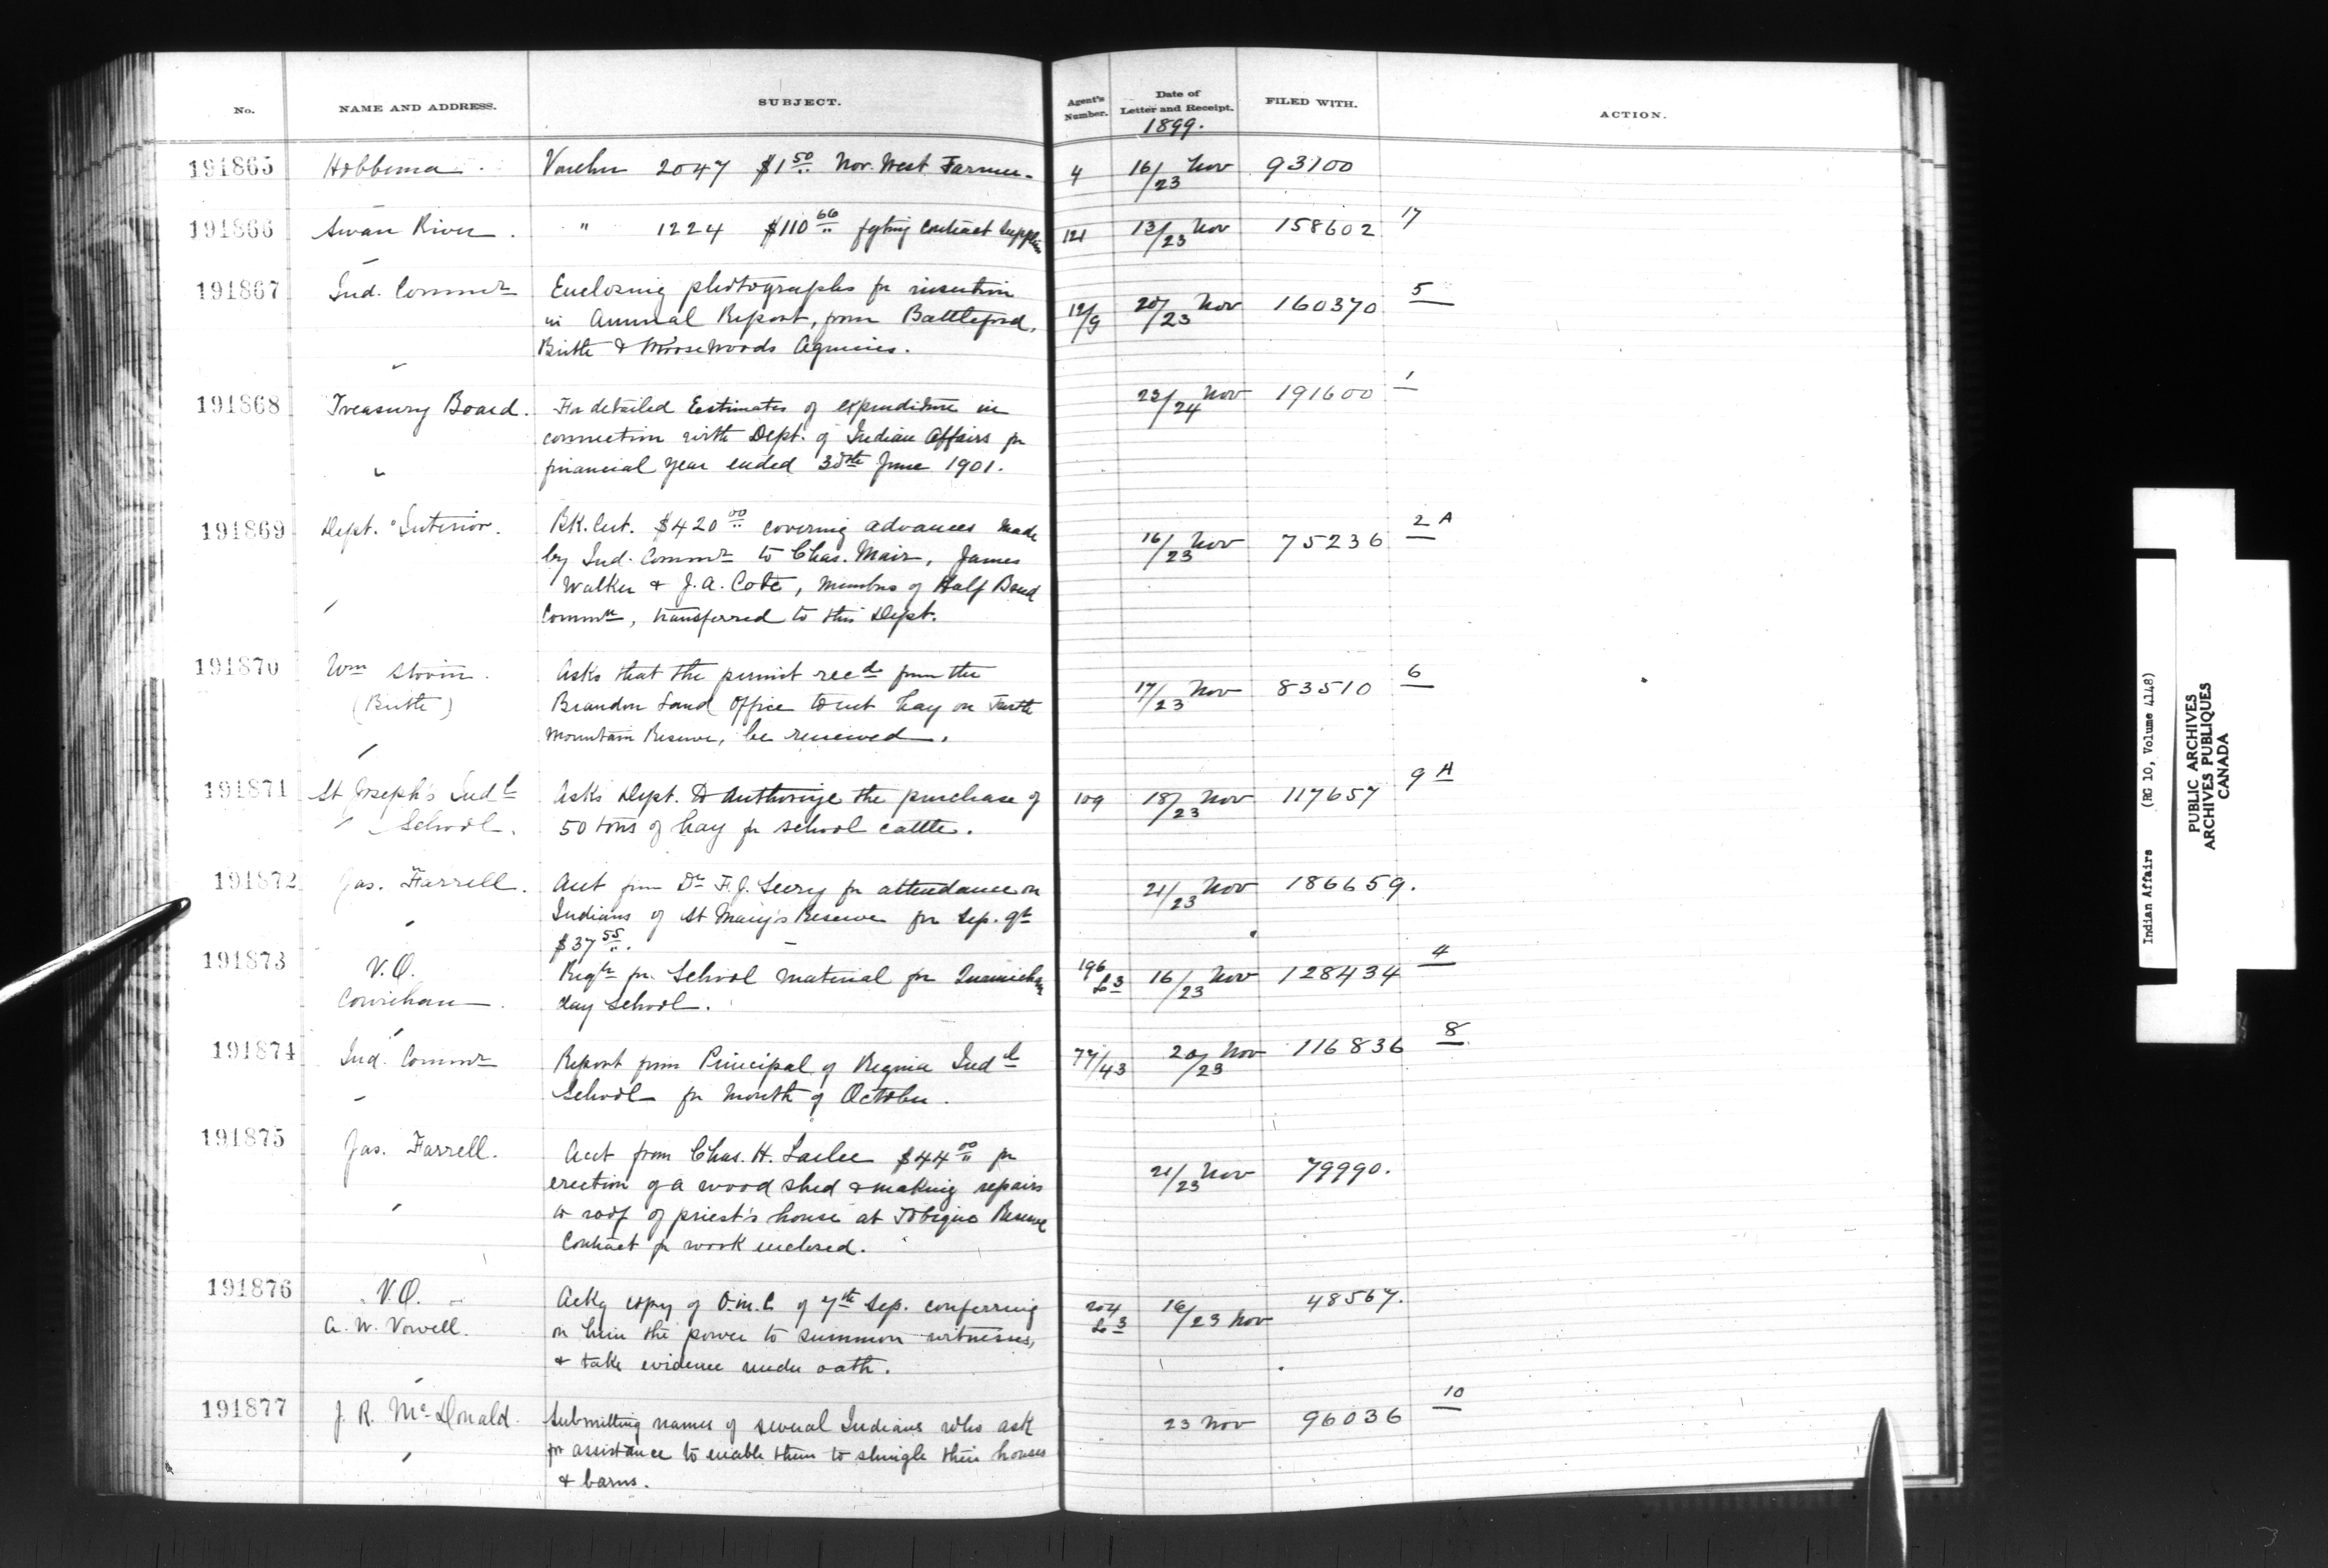 No. NAME AND ADDRESS. SUBJECT. Agent's Number. Date of Letter and Receipt. FILED WITH. ACTION.
1899.
191865 Hobbema. Voucher 2047 $1.50 Nor. West Farmer. 4 16/23 Nov 93100
191866 Swan River. " 1224 $110.66 contract supplies 121 13/23 Nov 158602 17
191867 Ind. Commr Enclosing photographs for insertion 12/9 20/23 Nov 160370 5
in Annual Report, from Battleford,
Birtle & Moosewoods Agencies.
191868 Treasury Board. For detailed Estimates of expenditure in 23/24 Nov 191600 1
connection with Dept. of Indian Affairs for
financial year ended 30th June 1901.
191869 Dept. Interior. BK. Cert. $420.00 covering advances made 16/23 Nov 75236 2 A
by Ind. Commr to Chas. Mair, James
Walker & J.A. Cote, members of Half Breed
Commn, transferred to this Dept.
191870 Wm Asks that the permit recd from the 17/23 Nov 83510 6
(Birtle) Brandon Land Office to cut hay on Turtle
Mountain Reserve, be renewed.
191871 St Joseph's Indl Asks Dept. to authorize the purchase of 109 18/23 Nov 117657 9 A
School. 50 tons of hay for school cattle.
191872 Jas. Farrell. Acct from Dr F.J. Seery for attendance on 21/23 Nov 186659.
Indians of St Mary's Reserve for Sep. qr
$37.55.
191873 V.O. Reqn for School material for Quamichan 196 L3 16/23 Nov 128434 4
Cowichan. day School.
191874 Ind. Commr Report from Principal of Regina Indl 77/43 20/23 Nov 116836 8
School for month of October.
191875 Jas. Farrell. Acct from Chas. H. $44.00 for 21/23 Nov 79990.
erection of a wood shed & making repairs
to roof of priest's house at Tobique Reserve
Contract for work enclosed.
191876 V.O. Ackg copy of O.in.C of 7th Sep. conferring 204 L3 16/23 Nov 48567.
A. W. Vowell. on him the power to summon witnesses,
& take evidence under oath.
191877 J. R. McDonald. Submitting names of several Indians who ask 23 Nov 96036 10
for assistance to enable them to shingle their houses
& barns.
Indian Affairs (RG 10, Volume 4148)
PUBLIC ARCHIVES
ARCHIVES PUBLIQUES
CANADA